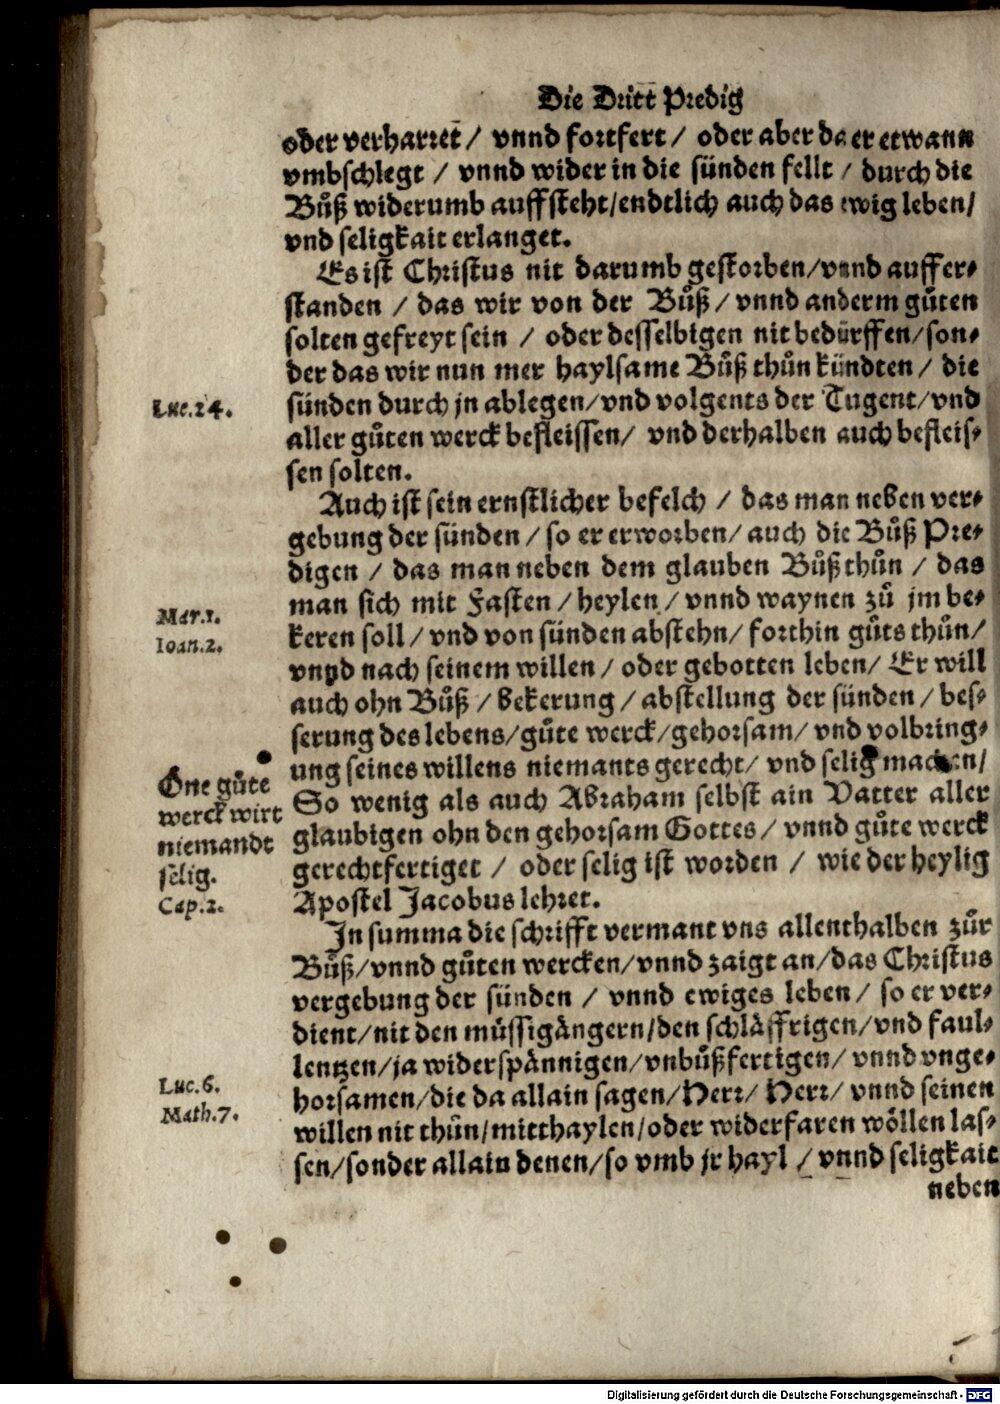 Die Dritt Predig
oder verharret / vnnd fortfert / oder aber da er etwann
vmbschlegt / vnnd wider in die sünden fellt / durch die
Bůß widerumb auffsteht/endtlich auch das ewig leben/
vnd seligkait erlanget.
Es ist Christus nit darumb gestorben/vnnd auffer⸗
standen / das wir von der Bůß/vnnd anderm gůten
solten gefreyt sein / oder desselbigen nit bedürffen/son⸗
der das wir nun mer haylsame Bůß thůn kündten / die
Luc.24.
sünden durch jn ablegen/vnd volgents der Tugent/vnd
aller gůten werck befleissen/ vnd derhalben auch befleis⸗
sen solten.
Auch ist sein ernstlicher befelch / das man neben ver⸗
gebung der sünden / so er erworben/auch die Bůß Pre⸗
digen / das man neben dem glauben Bůß thůn / das
Mar.1.
man sich mit Fasten/heylen/vnnd waynen zů jm be⸗
Ioan.2.
keren soll/vnd von sünden abstehn/forthin gůts thůn/
vnnd nach seinem willen/oder gebotten leben/ Er will
auch ohn Bůß/bekerung/abstellung der sünden/bes⸗
serung des lebens/gůte werck/gehorsam/vnd volbring⸗
ung seines willens niemants gerecht/vnd selig machen/
One gůte
werck wirt
niemandt
selig.
Cap.2.
So wenig als auch Abraham selbst ain Vatter aller
glaubigen ohn den gehorsam Gottes/vnnd gůte werck
gerechtfertiget / oder selig ist worden / wie der heylig
Apostel Jacobus lehret.
In summa die schrifft vermant vns allenthalben zůr
Bůß/vnnd gůten wercken/vnnd zaigt an/das Christus
vergebung der sünden / vnnd ewiges leben/ so er ver⸗
dient/nit den müssigängern/den schläffrigen/vnd faul⸗
lentzen/ja widerspännigen/vnbůßfertigen/vnnd vnge⸗
Luc.6.
horsamen/die da allain sagen/Herr/ Herr/ vnnd seinen
Math.7.
willen nit thůn/mitthaylen/oder widerfaren wöllen las⸗
sen/sonder allain denen/so vmb jr hayl / vnnd seligkait
neben
Digitalisierung gefördert durch die Deutsche Forschungsgemeinschaft - DFG